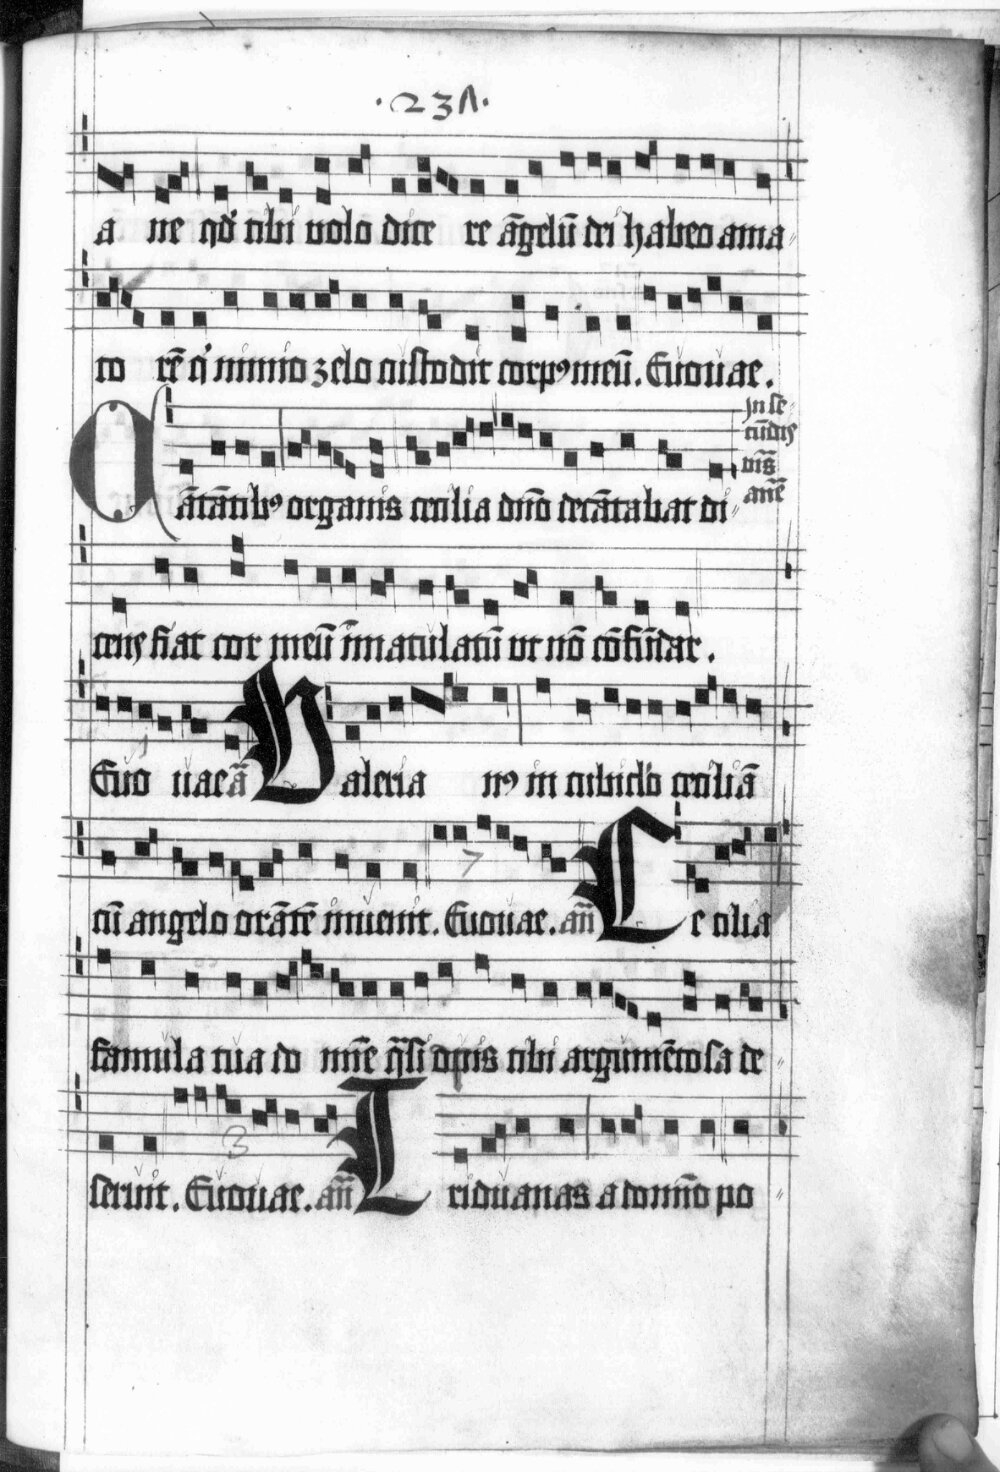 ·23Λ·
a ne qd' tibi volo dice re āgelū dei habeo ama〃
to rē q' nimio zelo custodit corpꝰ meū. Euouae.
In se〃
cūdis
vīs
anē
Cātātibꝰ organis cecilia dn̄o decātabat di〃
cens fiat cor meū īmaculatū ut nō cōfūdar.
Euo uae ā Valeria nꝰ in cubiclo ceciliā
7
cū angelo orātē invenit. Euouae. an̄ Ce cilia
famula tua do mīe q̄si apis tibi argumētosa de〃
3
seruit. Euouae. an̄ Triduanas a domīo po〃